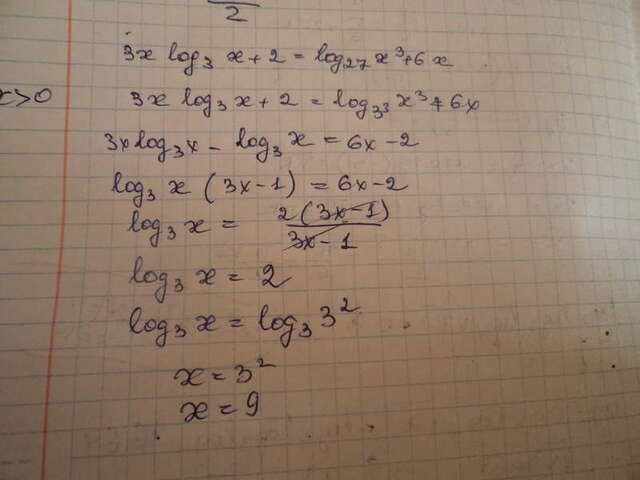 2
3x log₃ x + 2 = log₂₇ x³ + 6x
x>0 3x log₃ x + 2 = log₃³ x³ + 6x
3x log₃ x - log₃ x = 6x - 2
log₃ x (3x - 1) = 6x - 2
log₃ x = 2(3x - 1) / 3x - 1
log₃ x = 2
log₃ x = log₃ 3²
x = 3²
x = 9